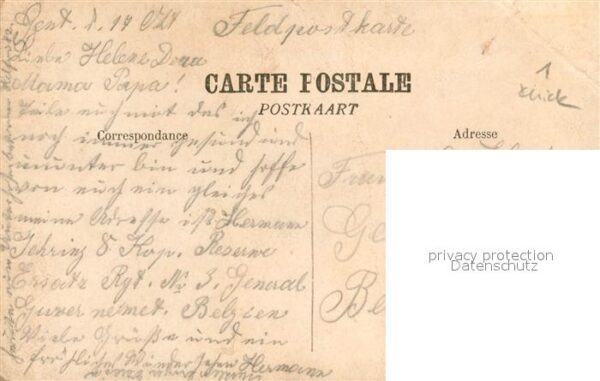 Gent. d. 14 Okt
Feldpostkarte
Liebe Helene Dora
Mama Papa!
CARTE POSTALE
POSTKAART
Correspondance
Adresse
Teile euch mit das ich
noch immer gesund und
munter bin und hoffe
von euch ein gleiches
meine Adresse ist Hermann
Jehring 8 Kop. Reserve
Ersatz Rgt. No 3. General
Guvernemet. Belgien
Viele Grüße und ein
fröhliches Wiedersehen Hermann
privacy protection
Datenschutz